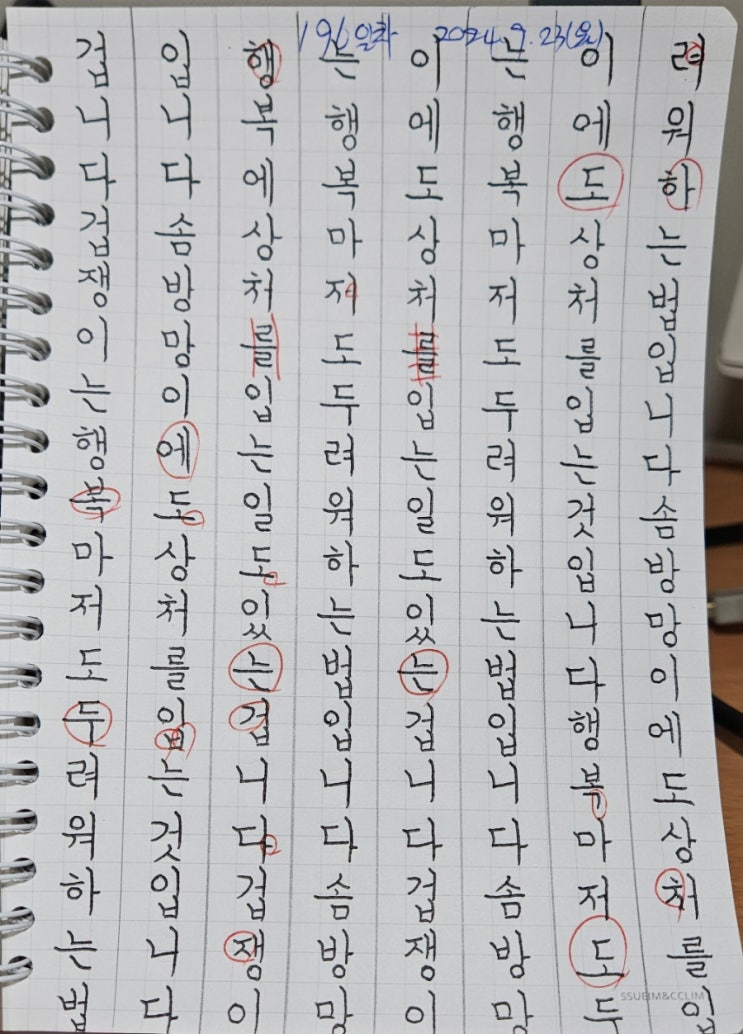 196일차 2024.9.23(월)
겁니다겁쟁이는행복마저도두려워하는법
입니다솜방망이에도상처를입는것입니다
행복에상처를입는일도있는겁니다겁쟁이
는행복마저도두려워하는법입니다솜방망
이에도상처를입는일도있는겁니다겁쟁이
는행복마저도두려워하는법입니다솜방망
이에도상처를입는것입니다행복마저도두
려워하는법입니다솜방망이에도상처를입